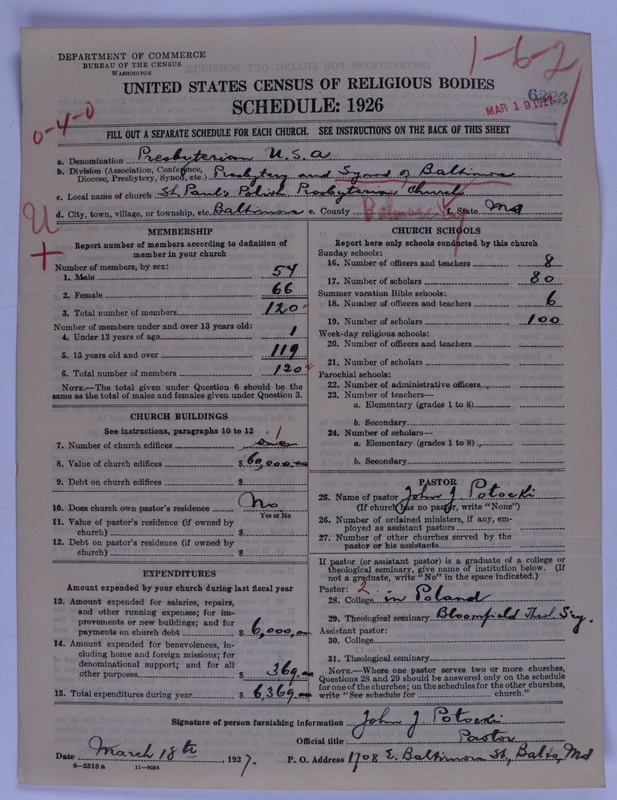 DEPARTMENT OF COMMERCE
BUREAU OF THE CENSUS
WASHINGTON
1-6-2
UNITED STATES CENSUS OF RELIGIOUS BODIES
SCHEDULE: 1926
MAR 19 1927
0-4-0
FILL OUT A SEPARATE SCHEDULE FOR EACH CHURCH. SEE INSTRUCTIONS ON THE BACK OF THIS SHEET
a. Denomination Presbyterian U.S.A
b. Division (Association, Conference, Diocese, Presbytery, Synod, etc.) Presbytery and Synod of Baltimore
c. Local name of church St. Paul's Polish Presbyterian Church
d. City, town, village, or township, etc. Baltimore e. County f. State Md
U
+
MEMBERSHIP
Report number of members according to definition of
member in your church
Number of members, by sex:
1. Male 54
2. Female 66
3. Total number of members 120
Number of members under and over 13 years old:
4. Under 13 years of age 1
5. 13 years old and over 119
6. Total number of members 120
NOTE.—The total given under Question 6 should be the
same as the total of males and females given under Question 3.
CHURCH BUILDINGS
See instructions, paragraphs 10 to 12
7. Number of church edifices one 1
8. Value of church edifices $ 60,000.00
9. Debt on church edifices $
10. Does church own pastor's residence No
Yes or No
11. Value of pastor's residence (if owned by
church) $
12. Debt on pastor's residence (if owned by
church) $
EXPENDITURES
Amount expended by your church during last fiscal year
13. Amount expended for salaries, repairs,
and other running expenses; for im-
provements or new buildings; and for
payments on church debt $ 6,000.00
14. Amount expended for benevolences, in-
cluding home and foreign missions; for
denominational support; and for all
other purposes $ 369.00
15. Total expenditures during year $ 6,369.00
CHURCH SCHOOLS
Report here only schools conducted by this church
Sunday schools:
16. Number of officers and teachers 8
17. Number of scholars 80
Summer vacation Bible schools:
18. Number of officers and teachers 6
19. Number of scholars 100
Week-day religious schools:
20. Number of officers and teachers
21. Number of scholars
Parochial schools:
22. Number of administrative officers
23. Number of teachers—
a. Elementary (grades 1 to 8)
b. Secondary
24. Number of scholars—
a. Elementary (grades 1 to 8)
b. Secondary
PASTOR
25. Name of pastor John J. Potocki
(If church has no pastor, write "None")
26. Number of ordained ministers, if any, em-
ployed as assistant pastors
27. Number of other churches served by the
pastor or his assistants
If pastor (or assistant pastor) is a graduate of a college or
theological seminary, give name of institution below. (If
not a graduate, write "No" in the space indicated.)
Pastor: 2
28. College in Poland
29. Theological seminary Bloomfield Theol. Sey.
Assistant pastor:
30. College
31. Theological seminary
NOTE.—Where one pastor serves two or more churches,
Questions 28 and 29 should be answered only on the schedule
for one of the churches; on the schedules for the other churches,
write "See schedule for church."
Signature of person furnishing information John J Potocki
Official title Pastor
Date March 18th, 1927. P. O. Address 1708 E. Baltimore St, Balto, Md
8-5518 a 11-9034